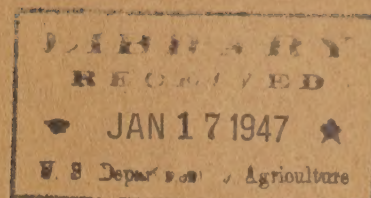 LIBRARY
RECEIVED
★ JAN 17 1947 ★
U. S. Department of Agriculture